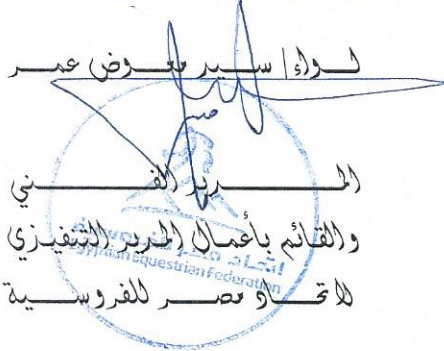 لواء/ سيد معوض عمر
المدير الفني
والقائم بأعمال المدير التنفيذي
لاتحاد مصر للفروسية
اتحاد مصر للفروسية
Egyptian Equestrian Federation